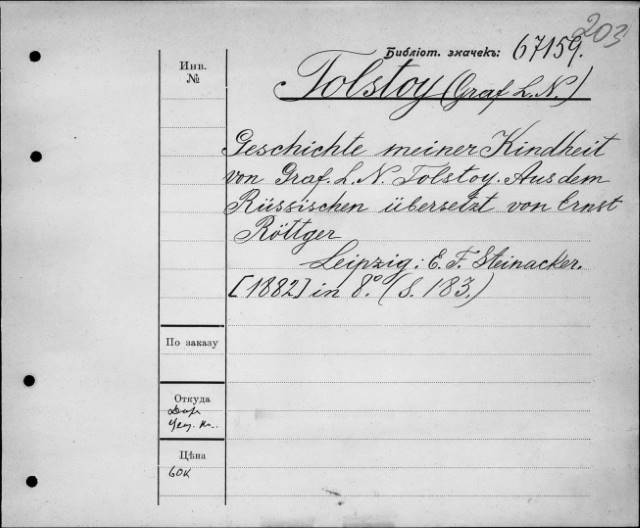 203
Библіот. значекъ: 67159.
Инв. №
Tolstoy (Graf L. N.)
Geschichte meiner Kindheit
von Graf. L. N. Tolstoy. Aus dem
Rüssischen übersetzt von Ernst
Röttger
Leipzig: E. F. Steinacker.
[1882] in 8° (S. 183.)
По заказу
Откуда
Дар
Цѣна
60к